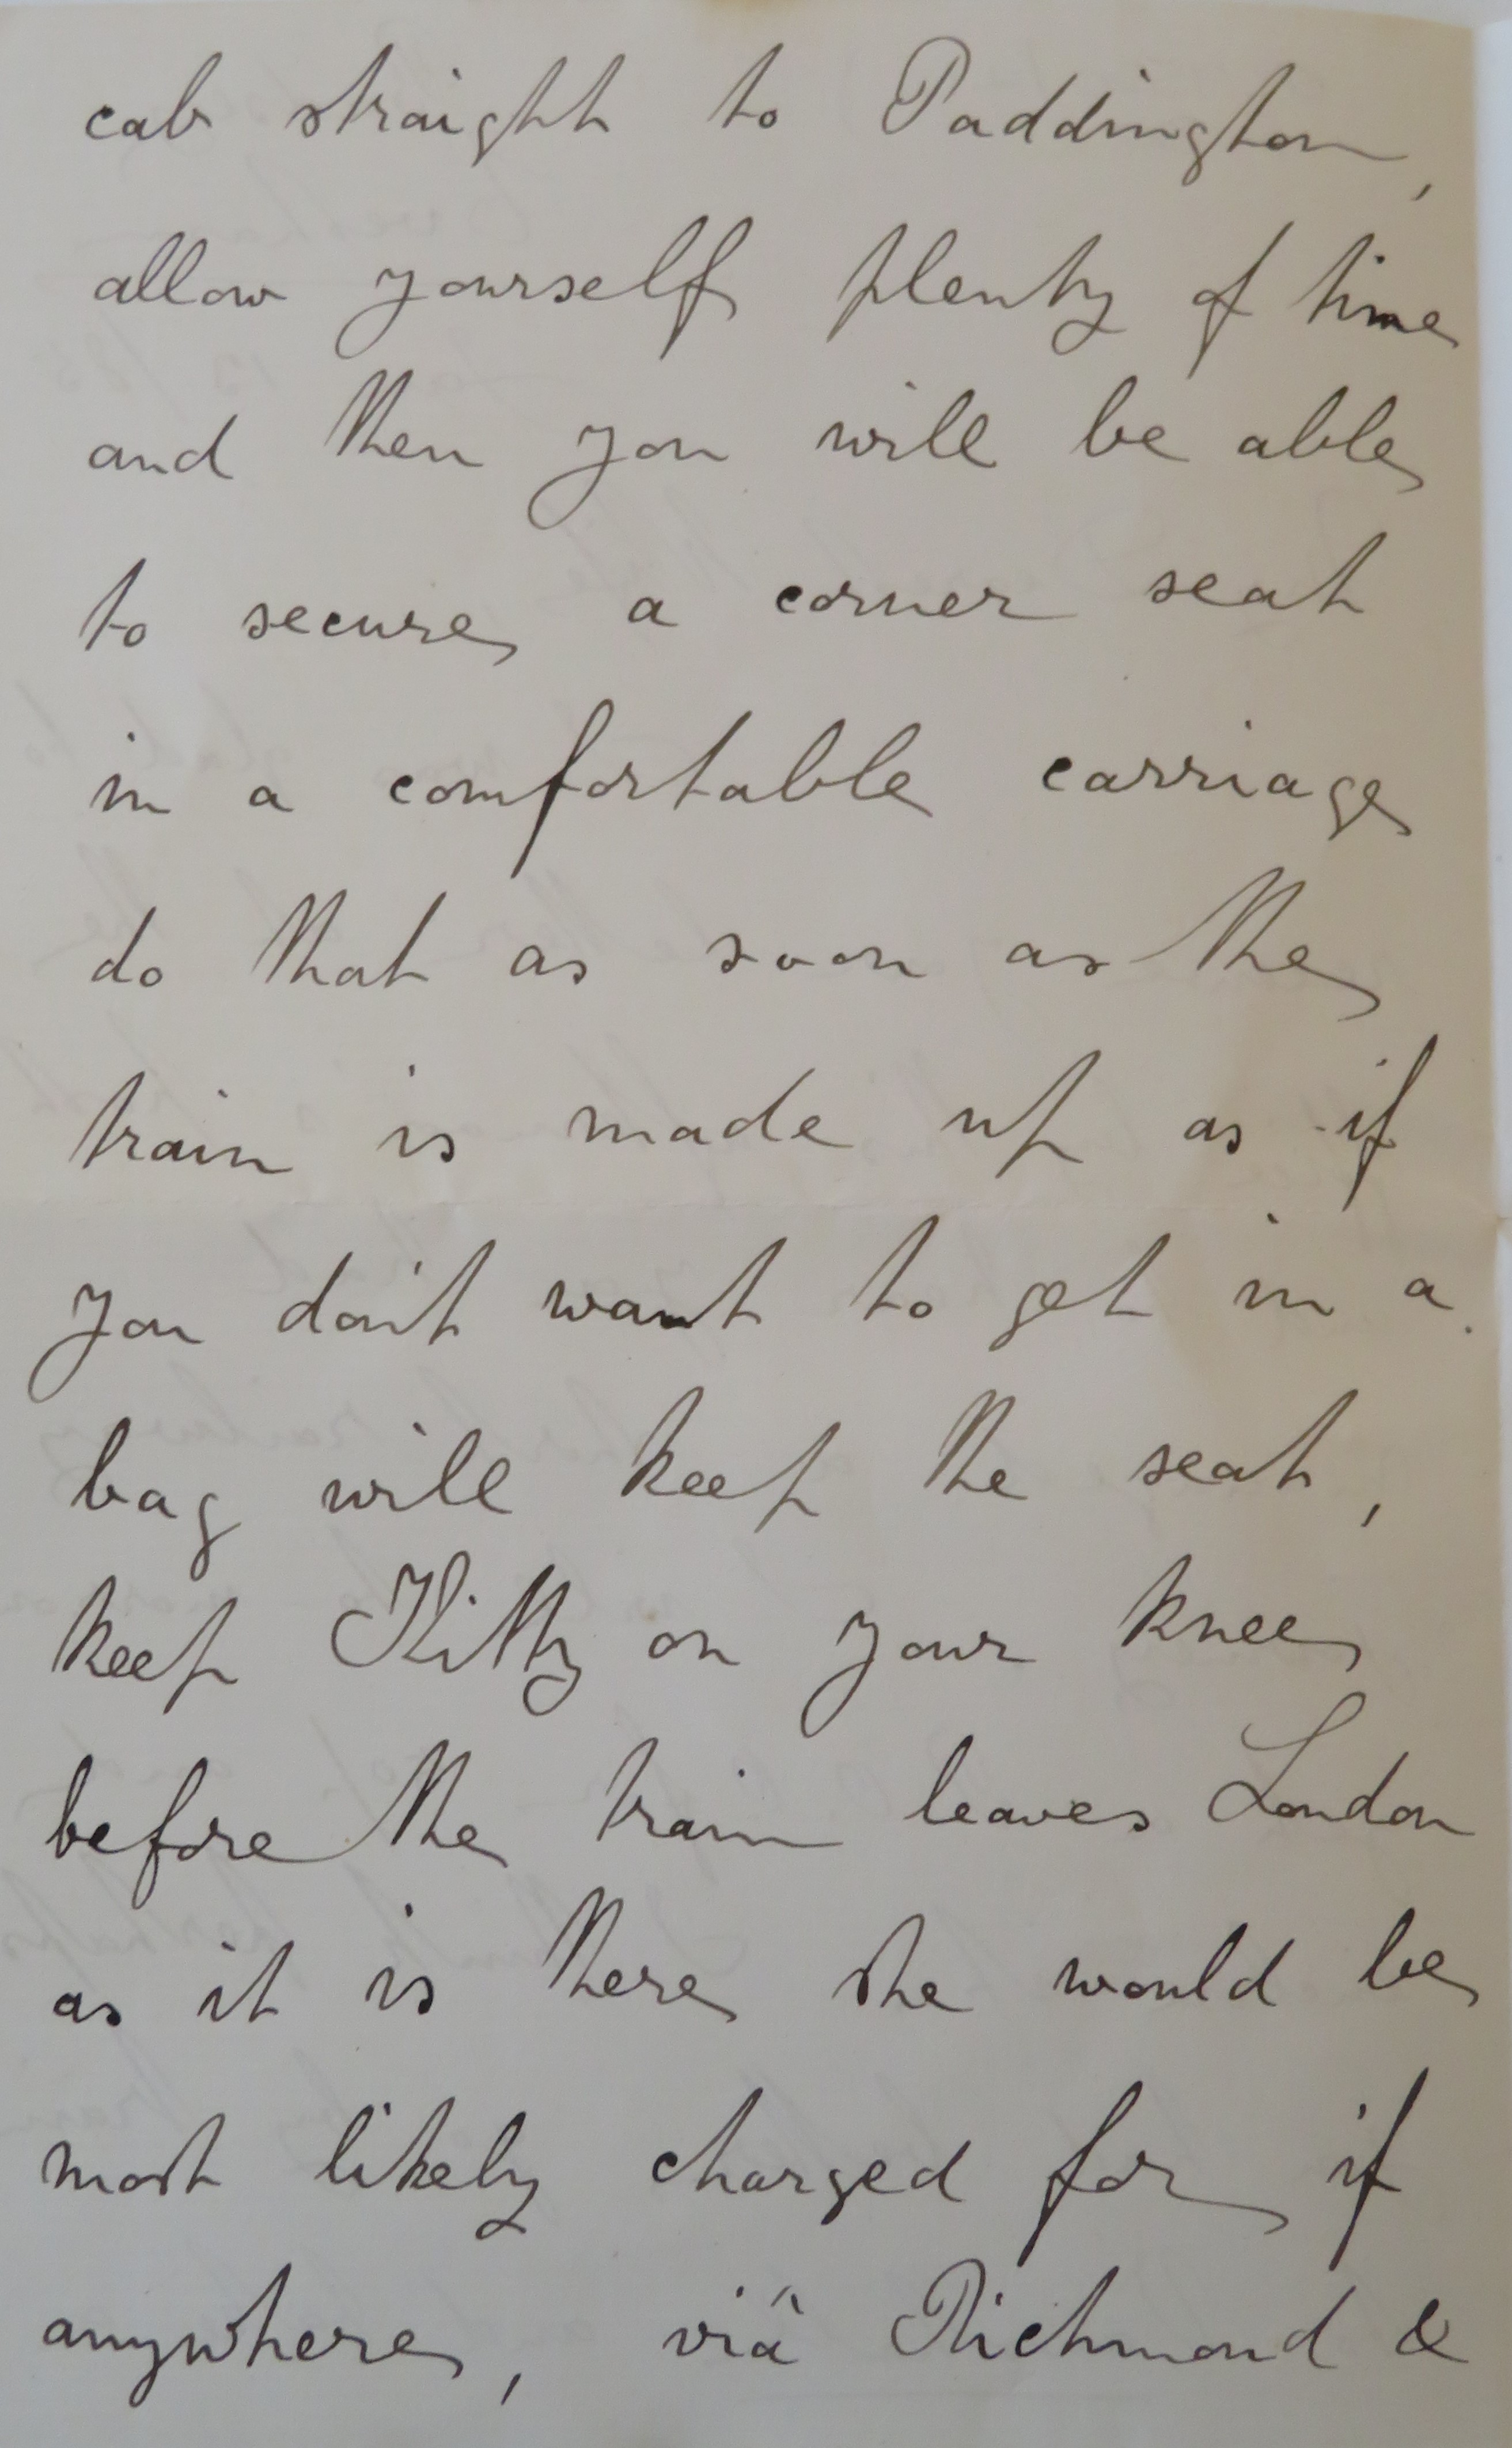 cab straight to Paddington,
allow yourself plenty of time
and then you will be able
to secure a corner seat
in a comfortable carriage
do that as soon as the
train is made up as if
you don't want to get in a
bag will keep the seat,
keep Kitty on your knee
before the train leaves London
as it is there she would be
most likely charged for if
anywhere, viâ Richmond &